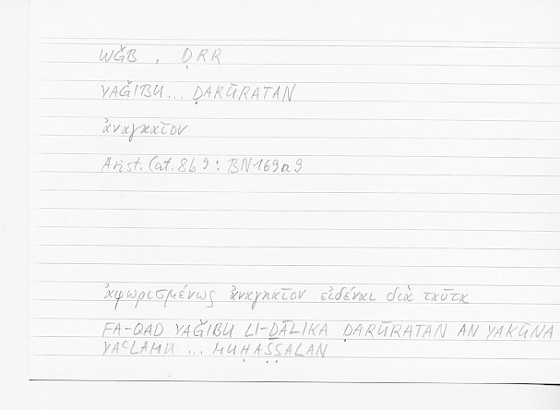 WǦB , ḌRR
YAǦIBU... ḌAKŪRATAN
ἀναγκαῖον
Arist. Cat. 8b9 : BN 169a9
ἀφωρισμένως ἀναγκαῖον εἰδέναι διὰ ταῦτα
FA-QAD YAǦIBU LI-ḎĀLIKA ḌARŪRATAN AN YAKŪNA
YAᶜLAMU ... MUḤAṢṢALAN